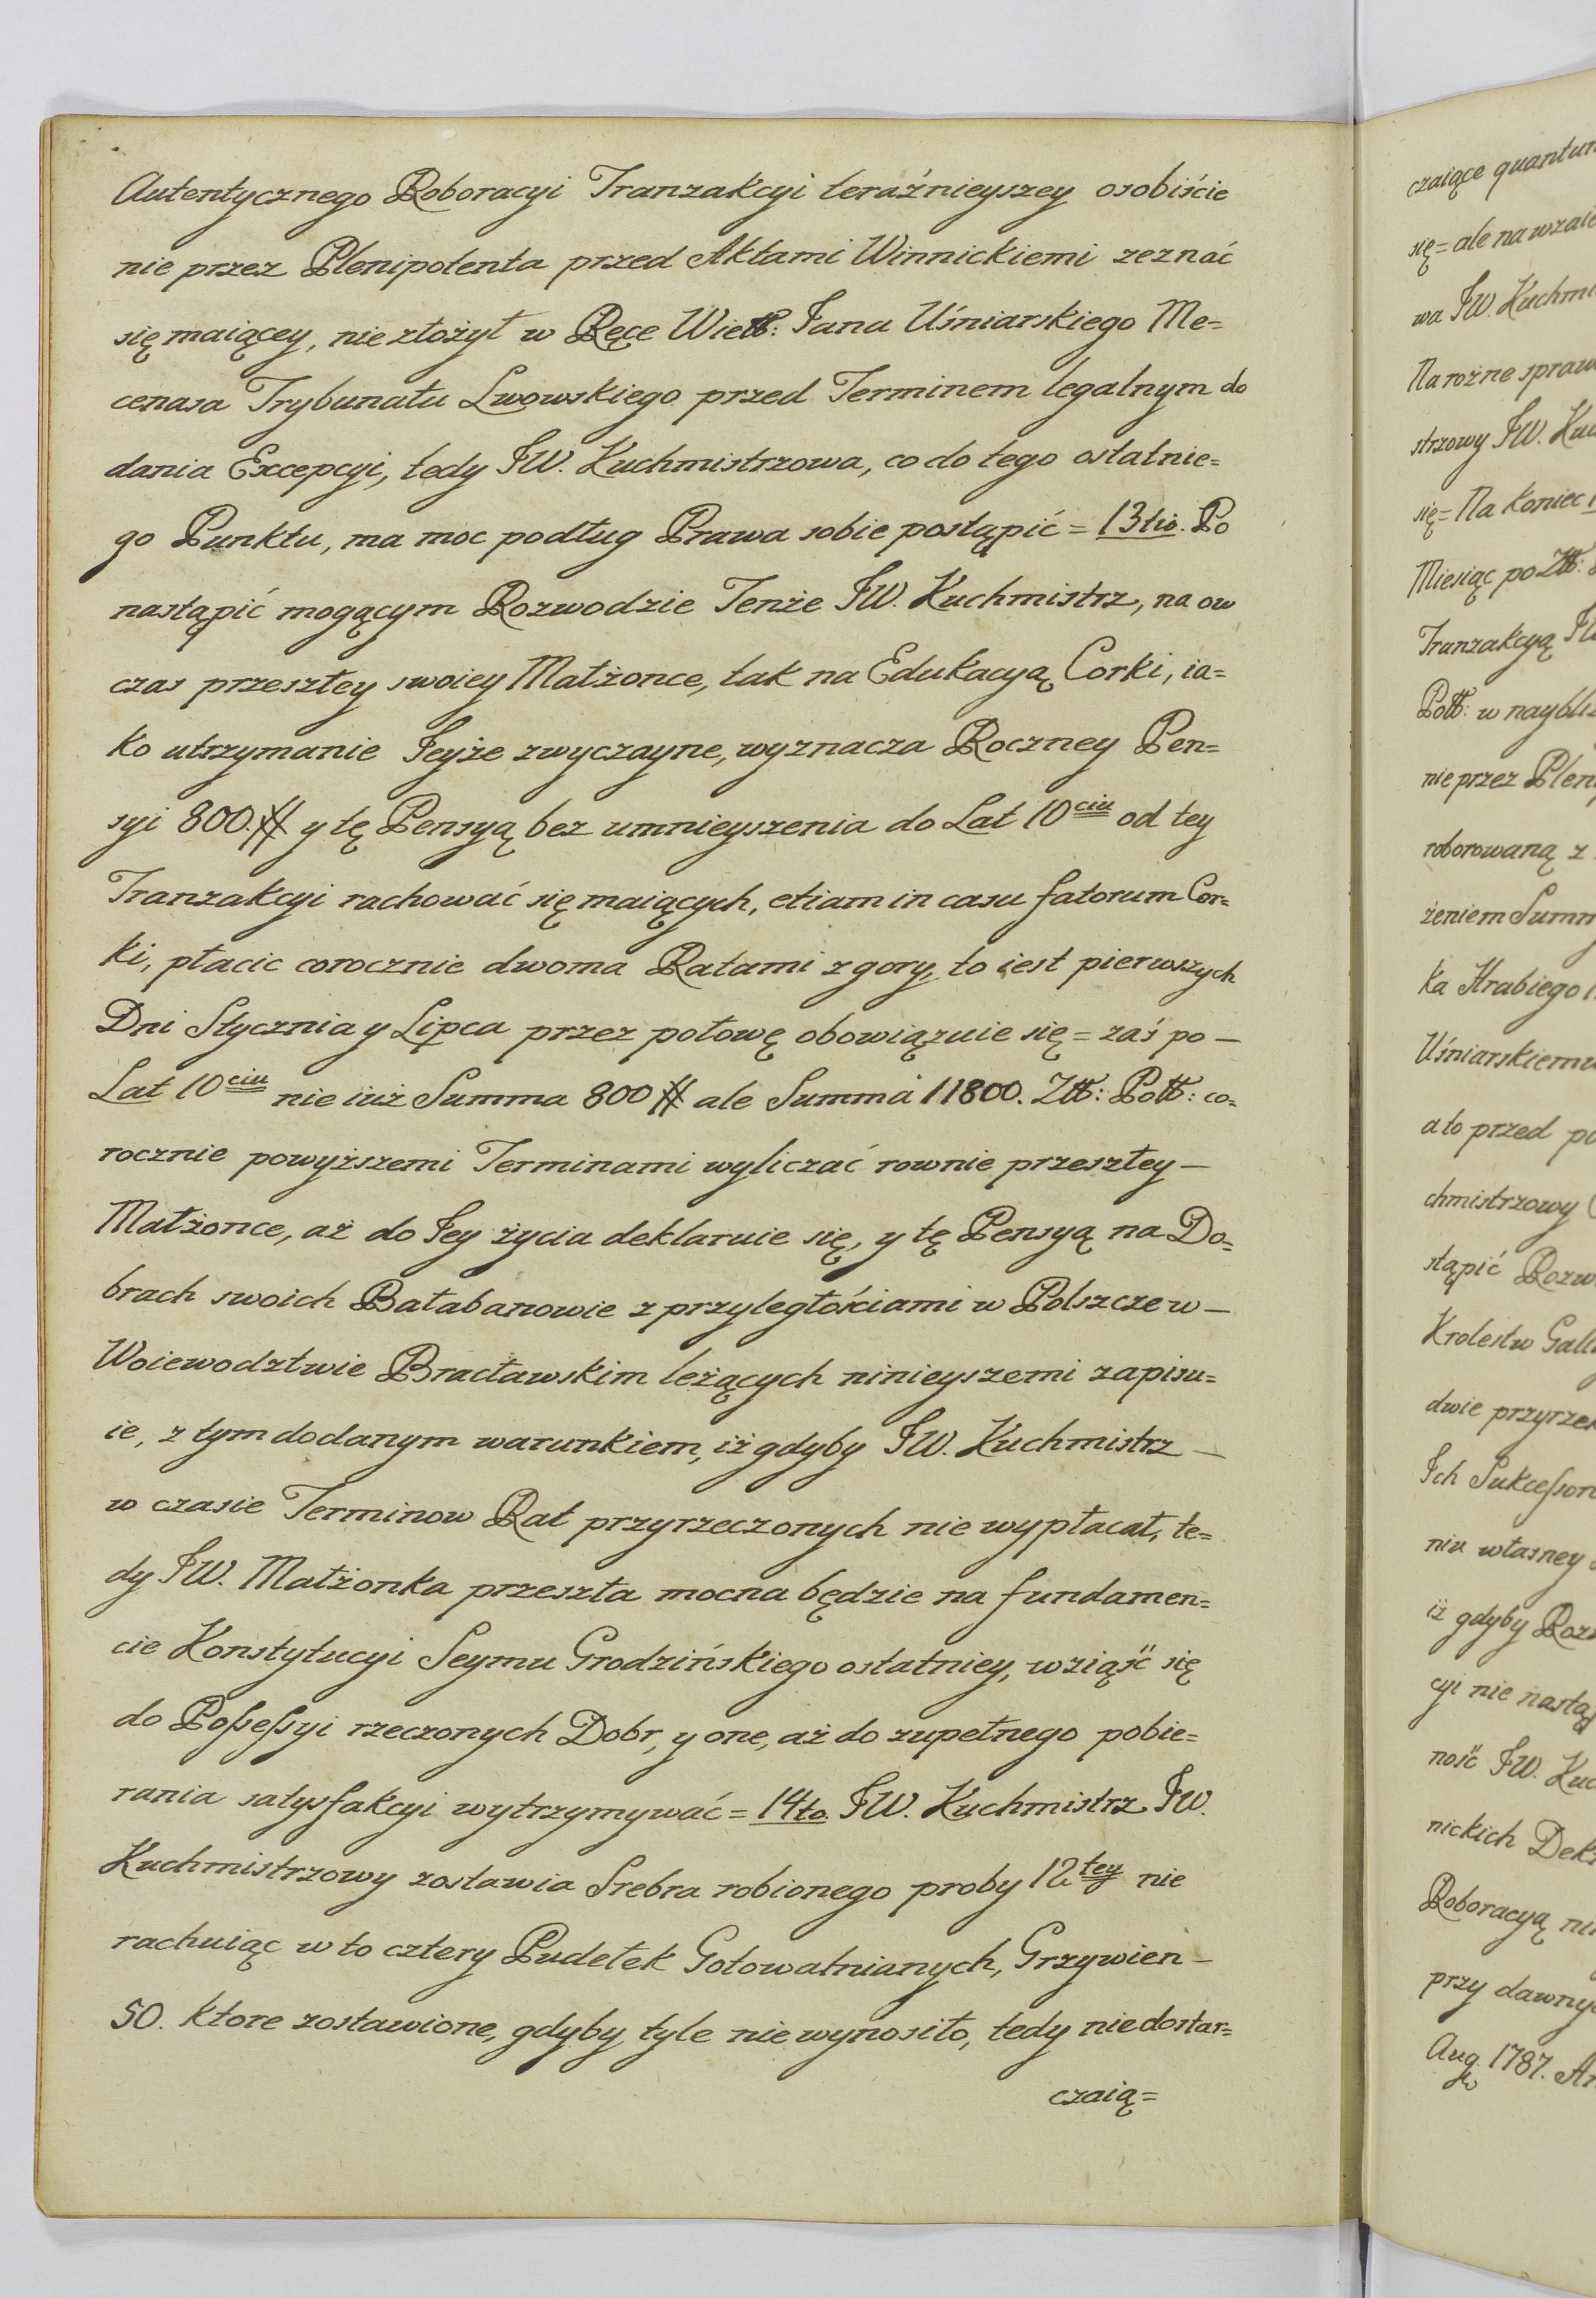 Autentycznego Roboracyi Tranzakcyi teraźnieyszey osobiście
nie przez Plenipotenta przed Aktami Winnickiemi zeznać
się maiącey, nie złożył w Ręce Wiell: Jana Uśniarskiego Me=
cenasa Trybunału Lwowskiego przed Terminem legalnym do
dania Excepcyi, tedy JW. Kuchmistrzowa, co do tego ostatnie=
go Punktu, ma moc podług Prawa sobie postąpić = 13tio. Po
nastąpić mogącym Rozwodzie Tenże JW. Kuchmistrz, na ow
czas przeszłey swoiey Małżonce, tak na Edukacyą Corki, ia=
ko utrzymanie Jeyże zwyczayne, wyznacza Roczney Pen=
syi 800.# y tę Pensyą bez umnieyszenia do Lat 10ciu od tey
Tranzakcyi rachować się maiących, etiam in casu fatorum Cor=
ki, płacic corocznie dwoma Ratami z gory, to iest pierwszych
Dni Stycznia y Lipca przez połowę obowiązuie się = zaś po —
Lat 10ciu nie iuż Summa 800 # ale Summa 11800. Złł: Poll: co=
rocznie powyższemi Terminami wyliczać rownie przeszłey —
Małżonce, aż do Jey życia deklaruie się, y tę Pensyą na Do=
brach swoich Bałabanowie z przyległościami w Polszcze w —
Woiewodztwie Bracławskim leżących ninieyszemi zapisu=
ie, z tym dodanym warunkiem, iż gdyby JW. Kuchmistrz —
w czasie Terminow Rat przyrzeczonych nie wypłacał, te=
dy JW. Małżonka przeszła mocna będzie na fundamen=
cie Konstytucyi Seymu Grodzińskiego ostatniey, wziąść się
do Poſseſsyi rzeczonych Dobr, y one, aż do zupełnego pobie=
rania satysfakcyi wytrzymywać = 14to. JW. Kuchmistrz JW.
Kuchmistrzowy zostawia Srebra robionego proby 12tey nie
rachuiąc w to cztery Pudełek Gotowalnianych, Grzywien —
50. ktore zostawione, gdyby tyle nie wynosiło, tedy niedostar=
czaią=
czaiące quantum
się = ale na wzaie
wa JW. Kuchmi
Na rożne spraw
strzowy JW. Kuc
się = Na koniec
Miesiąc po Złł:
Tranzakcyą JW
Poll: w naybliż
nie przez Pleni
roborowaną z
żeniem Summ
ka Hrabiego
Uśniarskiemu
a to przed po
chmistrzowy
stąpić Rozw
Krolestw Gall
dwie przyrzek
Ich Sukceſsor
niu własney
iż gdyby Roz
cyi nie nastą
ność JW. Kuc
nickich Dek
Roboracyą ni
przy dawny
Aug. 1787. A